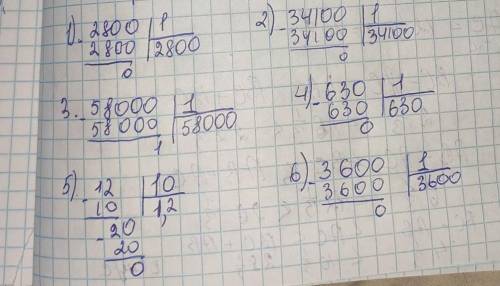 1) - 2800 | 1
2800 | 2800
0
2) - 34100 | 1
34100 | 34100
0
3. - 58000 | 1
58000 | 58000
1
4) - 630 | 1
630 | 630
0
5) - 12 | 10
10 | 1,2
- 20
20
0
6) - 3600 | 1
3600 | 3600
0